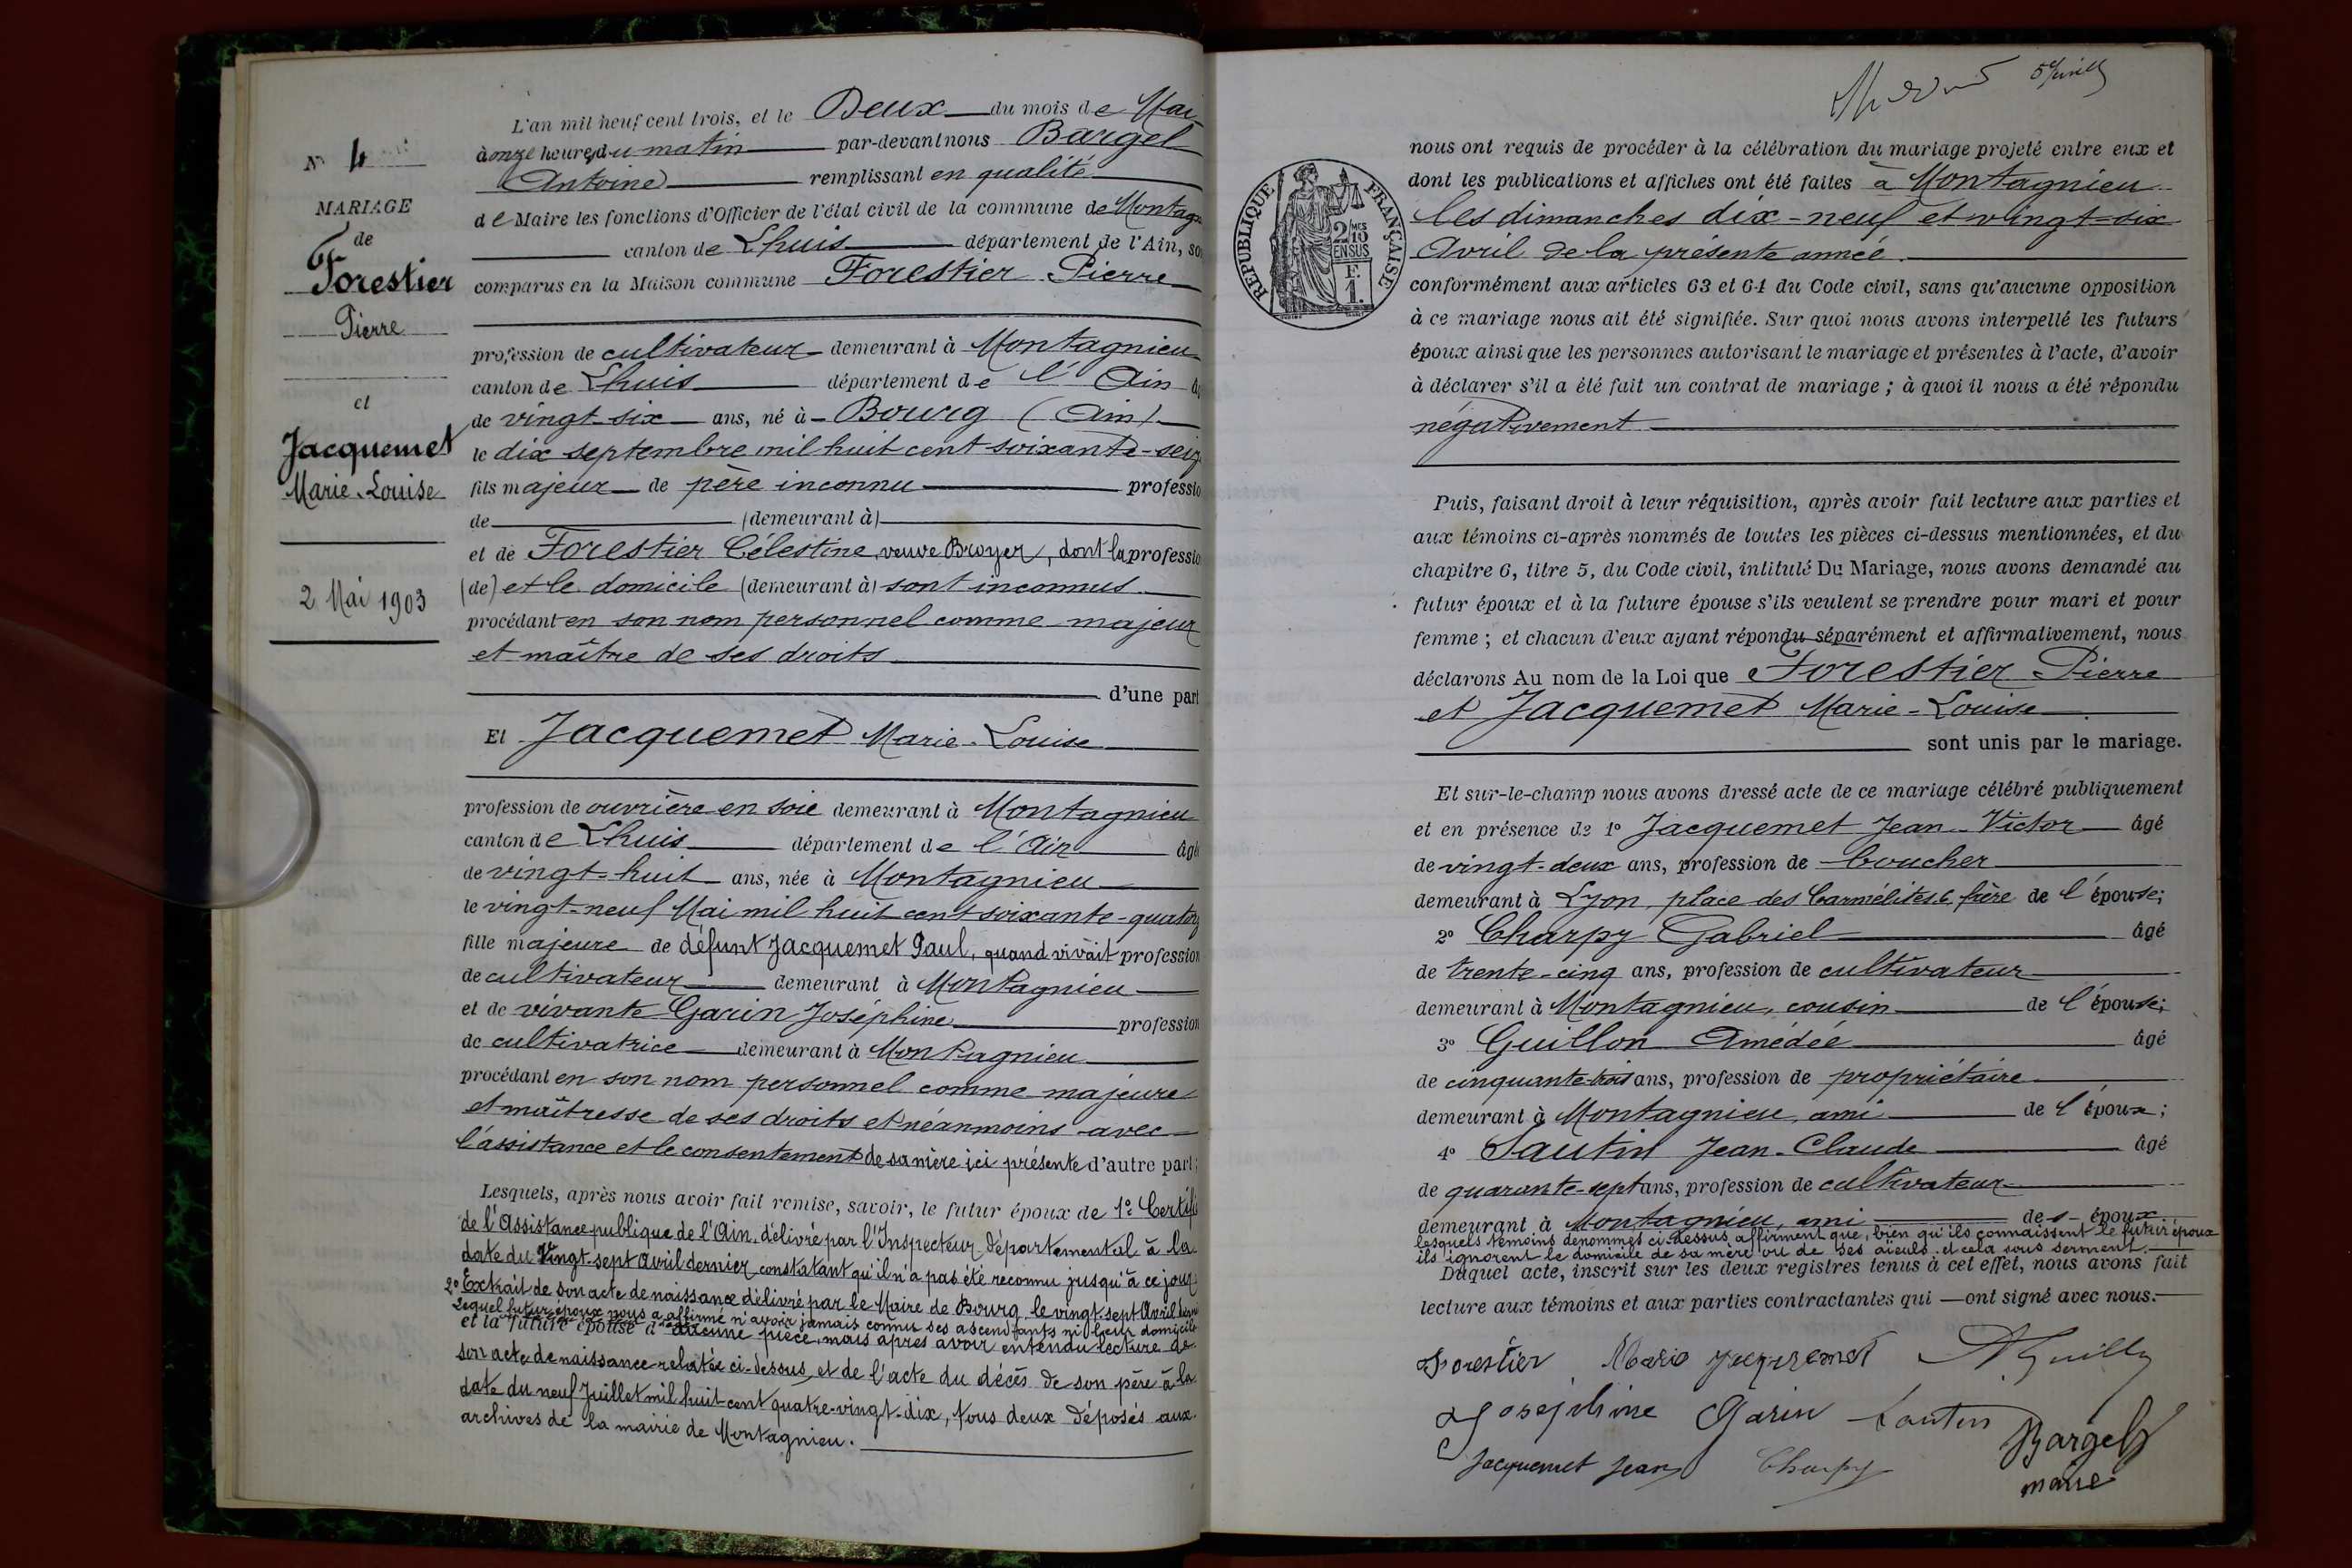 N° 4
MARIAGE
de
Forestier
Pierre
et
Jacquemet
Marie-Louise
2 Mai 1903
L'an mil neuf cent trois, et le Deux du mois de Mai
à onze heures du matin par-devant nous Bargel
Antoine remplissant en qualité
de Maire les fonctions d'Officier de l'état civil de la commune de Montagn
canton de Lhuis département de l'Ain, so
comparus en la Maison commune Forestier Pierre
profession de cultivateur demeurant à Montagnieu
canton de Lhuis département de l'Ain âg
de vingt-six ans, né à Bourg (Ain)
le dix septembre mil huit cent soixante-seiz
fils majeur de père inconnu professio
de (demeurant à)
et de Forestier Célestine, veuve Broyer, dont la professio
(de) et le domicile (demeurant à) sont inconnus.
procédant en son nom personnel comme majeur
et maître de ses droits
d'une part
Et Jacquemet Marie-Louise
profession de ouvrière en soie demeurant à Montagnieu
canton de Lhuis département de l'Ain âgé
de vingt-huit ans, née à Montagnieu
le vingt-neuf Mai mil huit cent soixante-quatorz
fille majeure de défunt Jacquemet Paul, quand vivait profession
de cultivateur demeurant à Montagnieu
et de vivante Garin Joséphine profession
de cultivatrice demeurant à Montagnieu
procédant en son nom personnel comme majeure
et maîtresse de ses droits et néanmoins avec
l'assistance et le consentement de sa mère ici présente d'autre part;
Lesquels, après nous avoir fait remise, savoir, le futur époux de 1° Certifi
de l'Assistance publique de l'Ain, délivré par l'Inspecteur Départemental à la
date du Vingt-sept Avril dernier, constatant qu'il n'a pas été reconnu jusqu'à ce jour
2° Extrait de son acte de naissance délivré par le Maire de Bourg, le vingt-sept Avril dern
Lequel futur époux nous a affirmé n'avoir jamais connu ses ascendants ni leur domicile
et la future épouse d'aucune pièce, mais après avoir entendu lecture de
son acte de naissance relatée ci-dessus, et de l'acte du décès de son père à la
date du neuf Juillet mil huit-cent quatre-vingt-dix, tous deux déposés aux
archives de la mairie de Montagnieu.
RÉPUBLIQUE FRANÇAISE
2/10 MES
EN SUS
F.
1.
nous ont requis de procéder à la célébration du mariage projeté entre eux et
dont les publications et affiches ont été faites à Montagnieu
les dimanches dix-neuf et vingt-six
Avril de la présente année.
conformément aux articles 63 et 64 du Code civil, sans qu'aucune opposition
à ce mariage nous ait été signifiée. Sur quoi nous avons interpellé les futurs
époux ainsi que les personnes autorisant le mariage et présentes à l'acte, d'avoir
à déclarer s'il a été fait un contrat de mariage ; à quoi il nous a été répondu
négativement
Puis, faisant droit à leur réquisition, après avoir fait lecture aux parties et
aux témoins ci-après nommés de toutes les pièces ci-dessus mentionnées, et du
chapitre 6, titre 5, du Code civil, intitulé Du Mariage, nous avons demandé au
futur époux et à la future épouse s'ils veulent se prendre pour mari et pour
femme ; et chacun d'eux ayant répondu séparément et affirmativement, nous
déclarons Au nom de la Loi que Forestier Pierre
et Jacquemet Marie-Louise
sont unis par le mariage.
Et sur-le-champ nous avons dressé acte de ce mariage célébré publiquement
et en présence de 1° Jacquemet Jean-Victor âgé
de vingt-deux ans, profession de boucher
demeurant à Lyon, place des Carmélites 6, frère de l'épouse;
2° Charpy Gabriel âgé
de trente-cinq ans, profession de cultivateur
demeurant à Montagnieu, cousin de l'épouse;
3° Guillon Amédée âgé
de cinquante-trois ans, profession de propriétaire
demeurant à Montagnieu, ami de l'époux;
4° Sautin Jean-Claude âgé
de quarante-sept ans, profession de cultivateur
demeurant à Montagnieu, ami des époux
lesquels témoins dénommés ci-dessus affirment que, bien qu'ils connaissent le futur époux
ils ignorent le domicile de sa mère ou de ses aïeuls et cela sous serment.
Duquel acte, inscrit sur les deux registres tenus à cet effet, nous avons fait
lecture aux témoins et aux parties contractantes qui ont signé avec nous.
Forestier Marie Jacquemet
Joséphine Garin Sautin Bargel
Jacquemet Jean Charpy maire